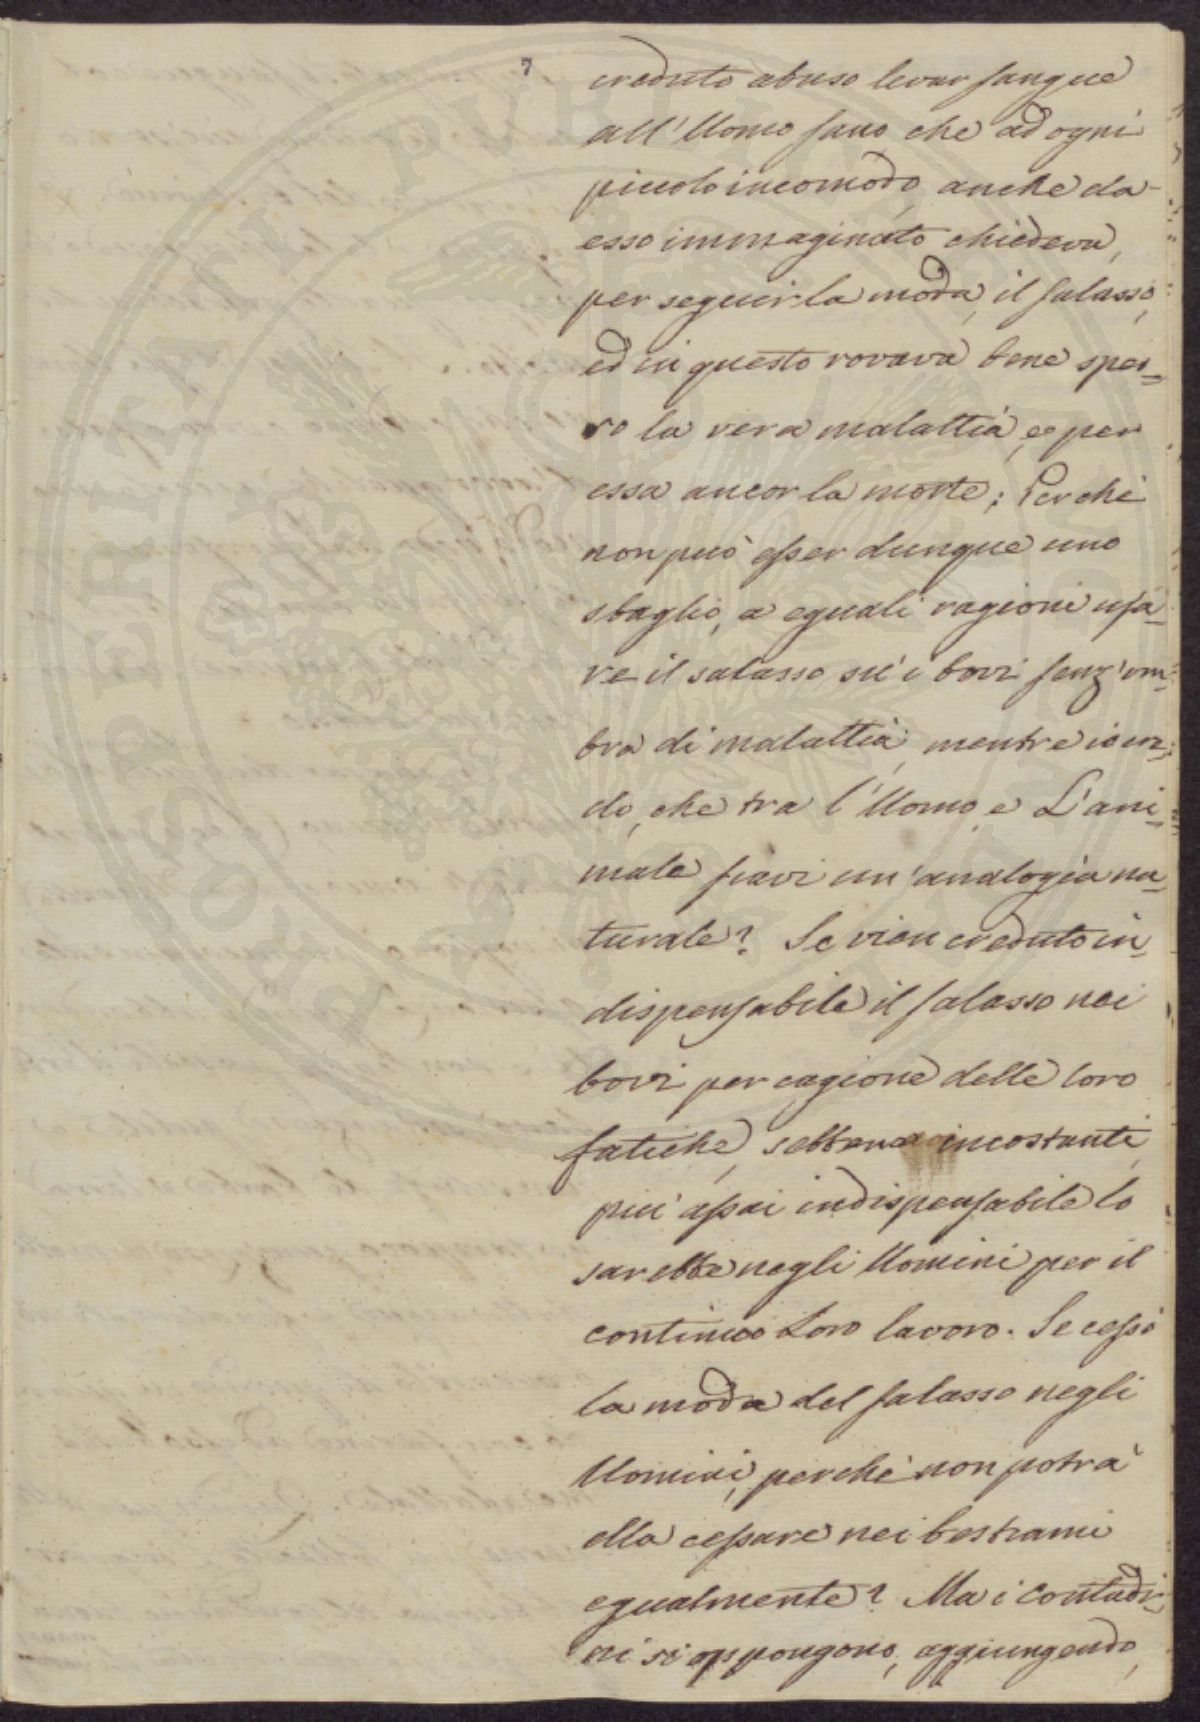 7
creduto abuso levar sangue
all'Uomo sano, che ad ogni
piccolo incomodo, anche da
esso immaginato chiedeva,
per seguir la moda, il salasso,
ed in questo rovava bene spes=
so la vera malattia, e per
essa ancor la morte; Perchè
non può esser dunque uno
sbaglio, a eguali ragioni usa=
re il salasso su' i bovi senz'om=
bra di malattia, mentre io cre=
do, che tra l'Uomo, e L'ani=
male siavi un'analogia na=
turale? Se vien creduto in=
dispensabile il salasso nei
bovi per cagione delle loro
fatiche, sebbene incostanti,
piu' assai indispensabile lo
sarebbe negli Uomini per il
continuo Loro lavoro. Se cessò
la moda del salasso negli
Uomini, perchè non potrà
ella cessare nei bestiami
egualmente? Ma i contadi=
ni si oppongono, aggiungendo,
PROSPERITATI PUBLICAE